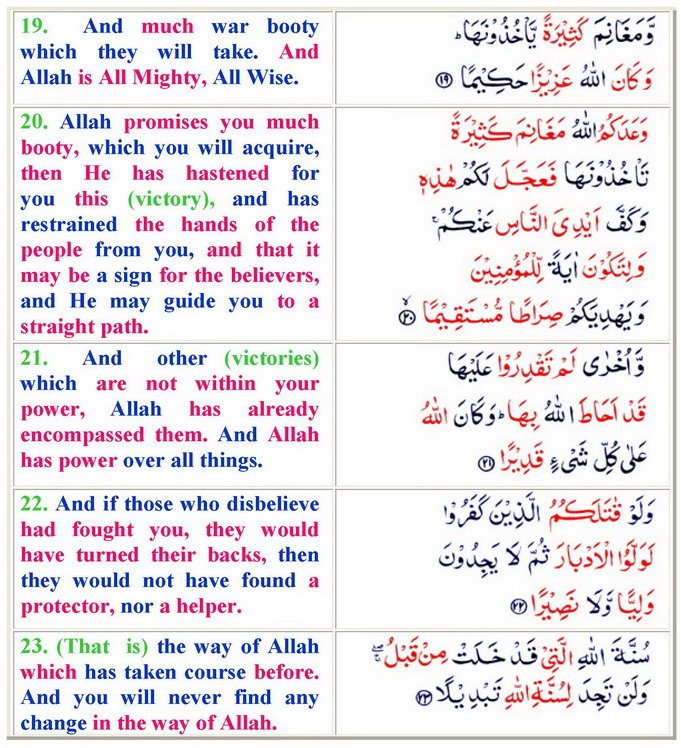 19. And much war booty
which they will take. And
Allah is All Mighty, All Wise.
وَّمَغَانِمَ كَثِيْرَةً يَّاْخُذُوْنَهَا ؕ
وَكَانَ اللّٰهُ عَزِيْزًا حَكِيْمًا ﴿۱۹﴾
20. Allah promises you much
booty, which you will acquire,
then He has hastened for
you this (victory), and has
restrained the hands of the
people from you, and that it
may be a sign for the believers,
and He may guide you to a
straight path.
وَعَدَكُمُ اللّٰهُ مَغَانِمَ كَثِيْرَةً
تَاْخُذُوْنَهَا فَعَجَّلَ لَكُمْ هٰذِهٖ
وَكَفَّ اَيْدِىَ النَّاسِ عَنْكُمْ ۚ
وَلِتَكُوْنَ اٰيَةً لِّلْمُؤْمِنِيْنَ
وَيَهْدِيَكُمْ صِرَاطًا مُّسْتَقِيْمًا ۙ ﴿۲۰﴾
21. And other (victories)
which are not within your
power, Allah has already
encompassed them. And Allah
has power over all things.
وَّاُخْرٰى لَمْ تَقْدِرُوْا عَلَيْهَا
قَدْ اَحَاطَ اللّٰهُ بِهَا ؕ وَكَانَ اللّٰهُ
عَلٰى كُلِّ شَىْءٍ قَدِيْرًا ﴿۲۱﴾
22. And if those who disbelieve
had fought you, they would
have turned their backs, then
they would not have found a
protector, nor a helper.
وَلَوْ قٰتَلَكُمُ الَّذِيْنَ كَفَرُوْا
لَوَلَّوُا الْاَدْبَارَ ثُمَّ لَا يَجِدُوْنَ
وَلِيًّا وَّلَا نَصِيْرًا ﴿۲۲﴾
23. (That is) the way of Allah
which has taken course before.
And you will never find any
change in the way of Allah.
سُنَّةَ اللّٰهِ الَّتِىْ قَدْ خَلَتْ مِنْ قَبْلُ ۖۚ
وَلَنْ تَجِدَ لِسُنَّةِ اللّٰهِ تَبْدِيْلًا ﴿۲۳﴾